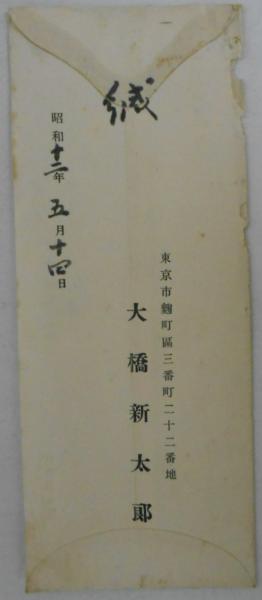 緘
東京市麴町區三番町二十二番地
大橋新太郎
昭和十二年五月十四日